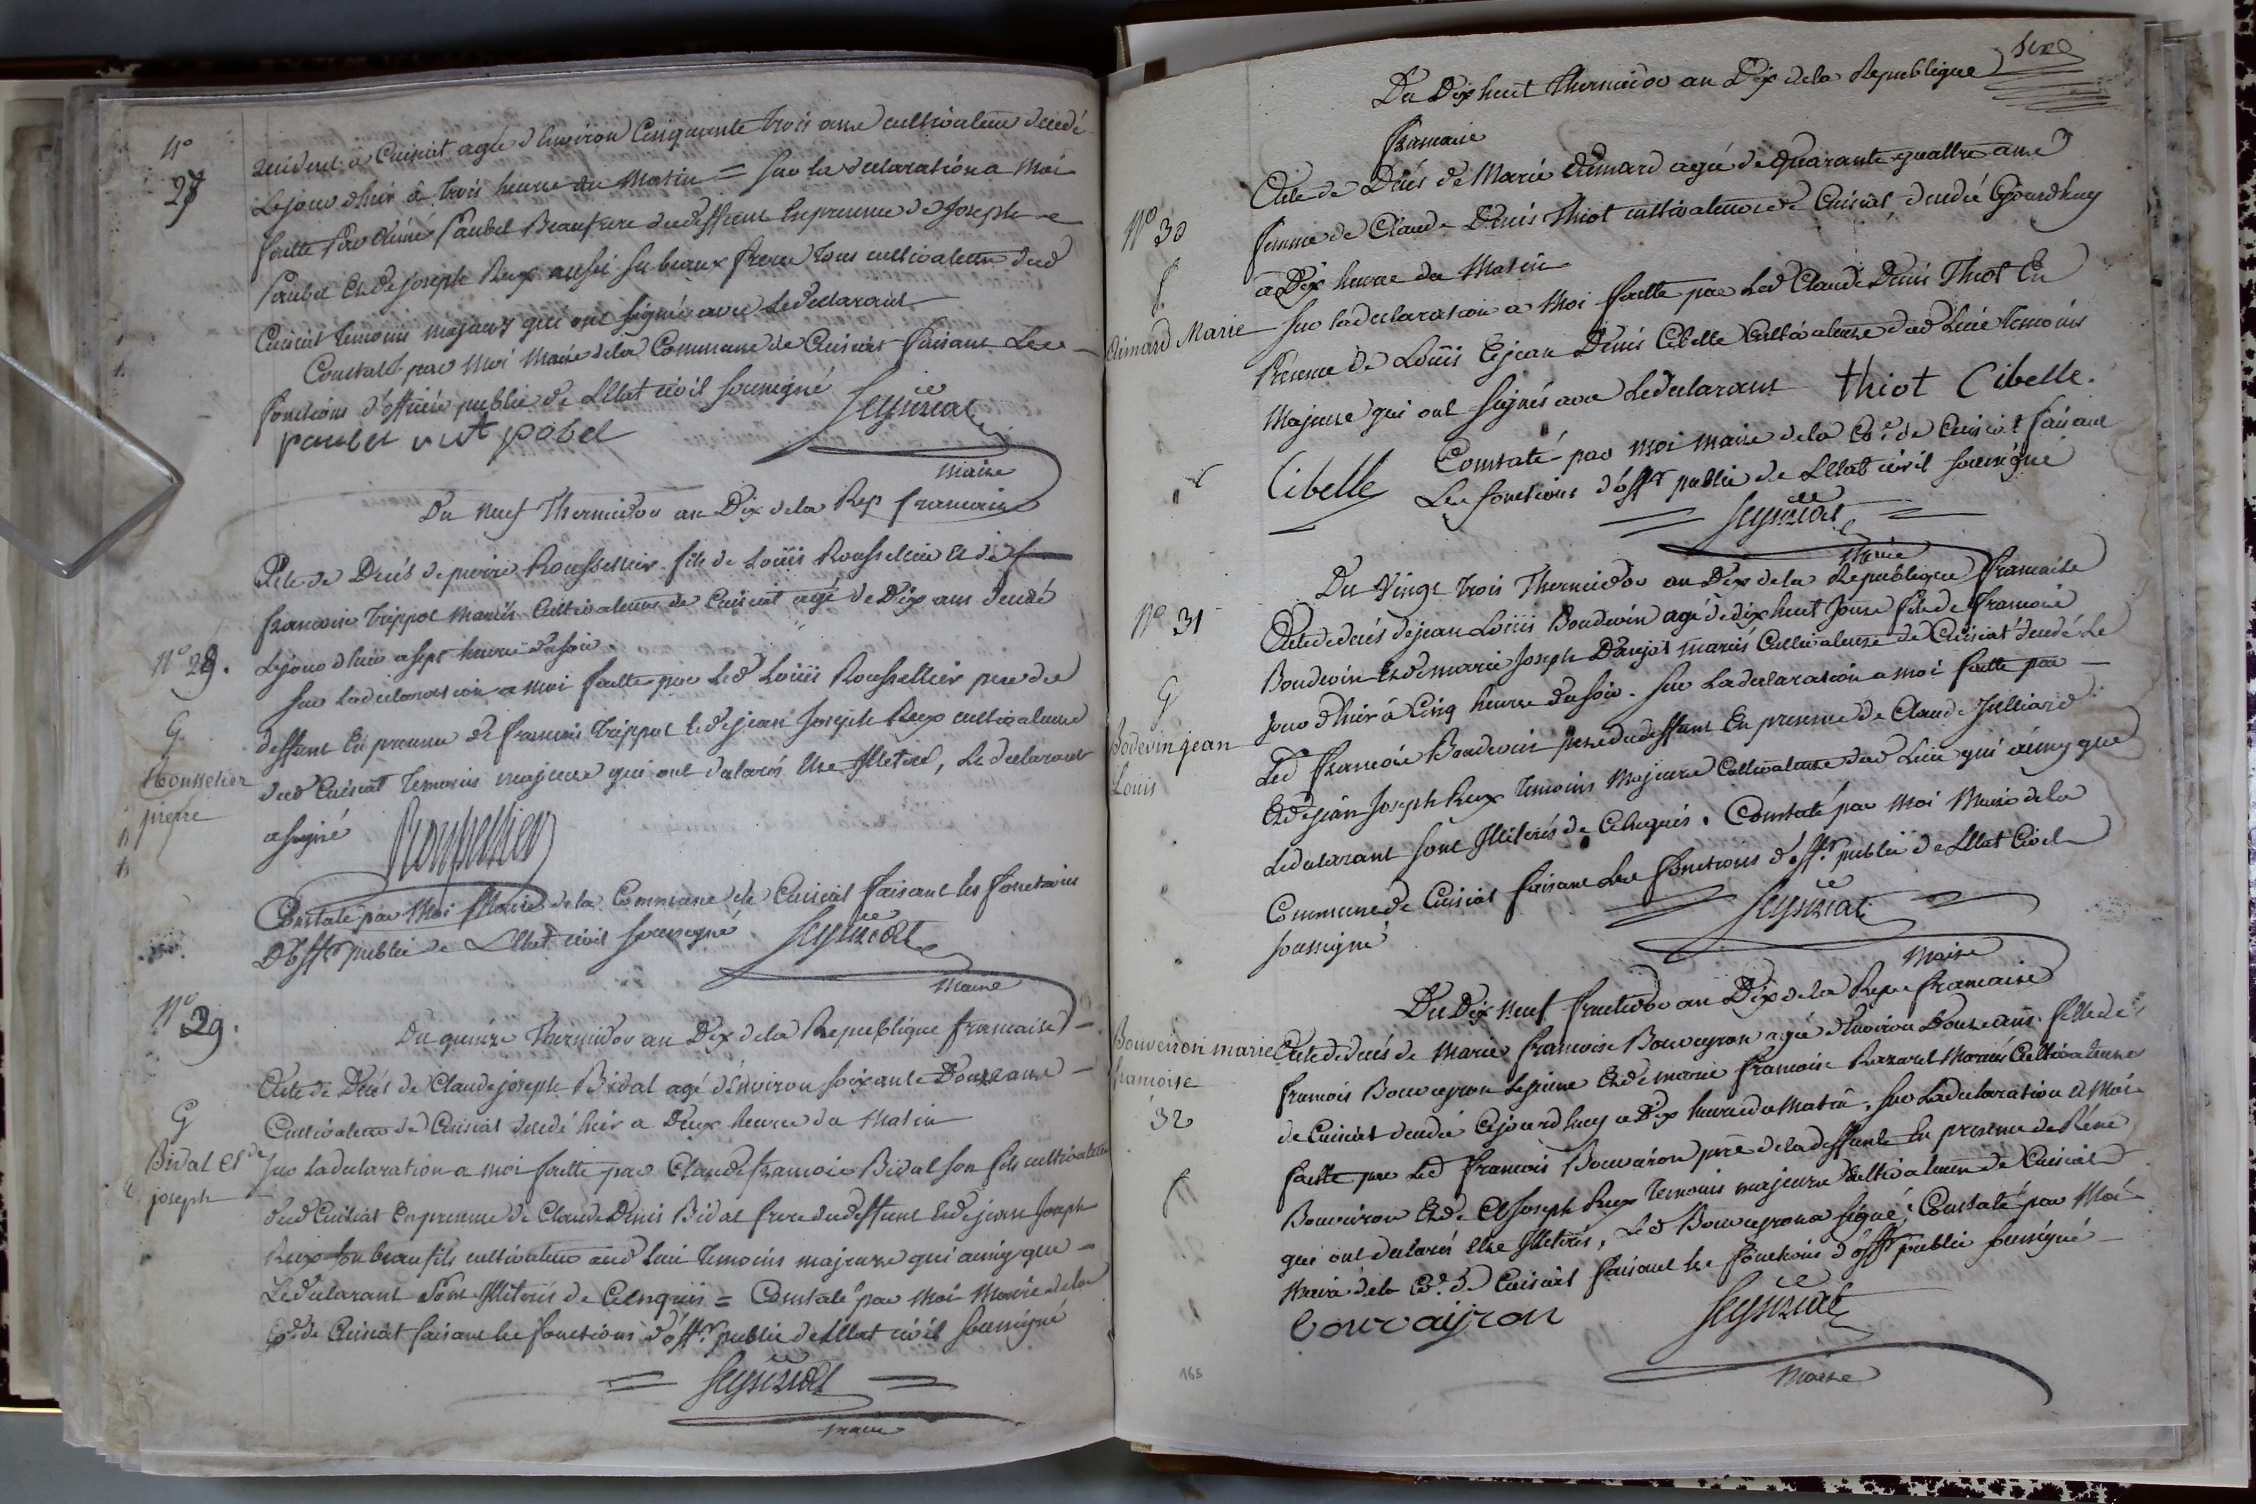 N°
27
Résident à Cuisiat agé d'Environ Cinquante trois ans cultivateur décédé
Le jour d'hier à trois heures du Matin = sur la déclaration a Moi
faitte par Aimé Paubel Beaufrere du deffunt En presence de Joseph
Paubel Et de joseph Rux aussi ses beaux freres tous cultivateurs dud
Cuisiat temoins majeurs qui ont signés avec Le declarant
Constaté par Moi Maire dela Commune de Cuisiat faisant Les
fonctions d'officier public de L'Etat civil soussigné
paubel pobel
maire
Du Neuf Thermidor an Dix dela Rep francaise
N° 28.
G
Rousselier
pierre
Acte de Décés de pierre Rousselier fils de Loüis Rousselier Et de
francoise Trippot Mariés Cultivateurs de Cuisiat agé de Dix ans decedé
Le jour d'hier a sept heures du soir.
sur La déclaration a moi faitte par Led Loüis Roussellier pere du
deffunt En presence de francois Trippot Et de jean Joseph Rux cultivateurs
dud Cuisiat Temoins majeurs qui ont déclarés Etre Illiterés, Le declarant
a signé
Roussellier
Constaté par Moi Maire dela Commune de Cuisiat faisant les fonctions
D'offr public de L'Etat civil soussigné
Maire
N° 29.
G
Bidal Cl de
joseph
Du quinze Thermidor an Dix dela Republique francaise
Acte de Décés de Claude joseph Bidal agé d'Environ soixante Douze ans
Cultivateur de Cuisiat decedé hier a Deux heures du Matin
Sur La declaration a moi faitte par Claude francois Bidal son fils cultivateur
dud Cuisiat En presence de Claude Denis Bidal frere du deffunt Et de jean Joseph
Rux son beau fils cultivateurs aud Lieu Temoins majeurs qui ainsy que
Le declarant Sont Illiterés de Ce Enquis = Constaté par Moi Maire dela
Co.e de Cuisiat faisant les fonctions d'offr. public de L'Etat civil soussigné
maire
Du Dix huit Thermidor an Dix dela Republique
francaise
N° 30
f
Aimard Marie
Acte de Décés de Marie Aimard agée de Quarante quattre ans
femme de Claude Denis Thiot cultivateur de Cuisiat decedée Cejourdhuy
a Dix heures du Matin
sur la declaration a Moi faitte par Led Claude Denis Thiot En
Presence de Loüis Et jean Denis Cibelle Cultivateurs dud Lieu temoins
Majeurs qui ont signés avec Le declarant thiot Cibelle.
Constaté par moi maire dela Co.e de Cuisiat faisant
Cibelle Les fonctions d'offr public de L'Etat civil soussigné
Maire
Du Vingt trois Thermidor an Dix dela Republique francaise
N° 31
G
Bodevin jean
Louis
Acte de decés de jean Loüis Boudevin agé de dix huit Jours fils de francois
Boudevin Et de marie Joseph Danjot mariés Cultivateurs de Cuisiat decedé Le
jour d'hier à Cinq heures du soir. sur La declaration a moi faitte par
Led francois Boudevin pere du deffunt En presence de Claude Julliard
Et de jean Joseph Rux temoins Majeurs Cultivateurs dud Lieu qui ainsy que
Le declarant sont Illiterés de Ce Enquis. Constaté par Moi Maire dela
Commune de Cuisiat faisant Les fonctions d'offr public de L'Etat Civil
soussigné
Maire
Du Dix Neuf fructidor an Dix dela Rep francaise
Bouveiron marie
francoise
32
f
Acte de decés de Marie francoise Bouveyron agée d'Environ Douze ans fille de
francois Bouveyron Le jeune Et de marie francoise Mariés Cultivateurs
de Cuisiat decedée Cejourd huy a Dix heures du Matin, sur La declaration a Moi
faitte par Led francois Bouveiron pere dela deffunte En presence de Réné
Bouveiron Et de Cl Joseph Rux temoins majeurs cultivateurs de Cuisiat
qui ont declarés Etre Illiterés, Led Bouveyron a signé, Constaté par Moi
Maire dela Co.e de Cuisiat faisant les fonctions d'offr public soussigné
bouvaijron
Maire
165